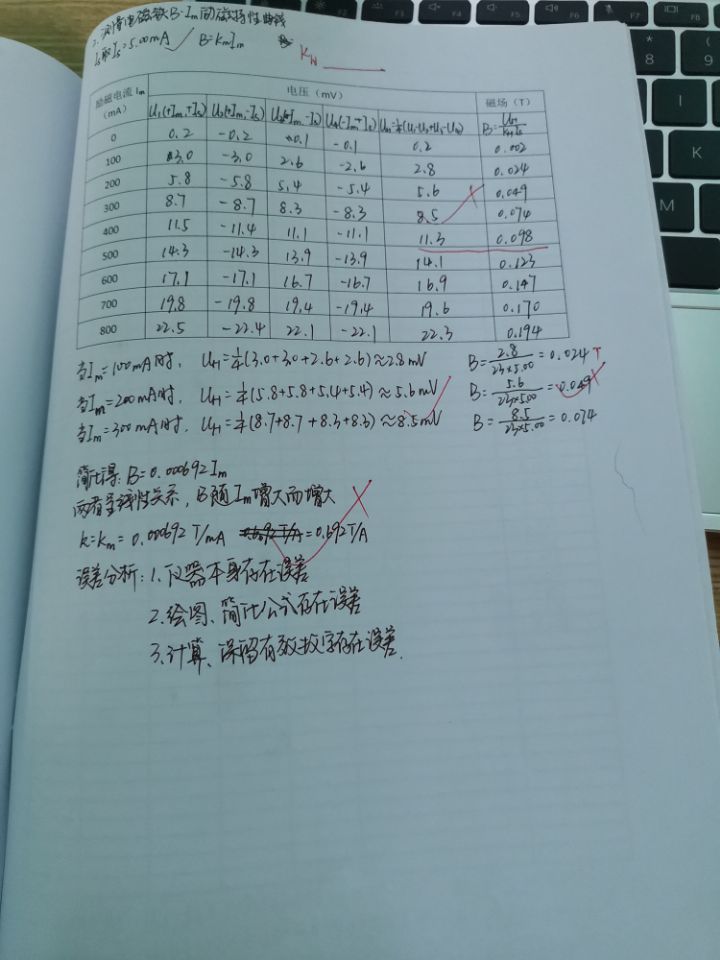 2. 测量电磁铁B-Im间磁特性曲线
Is取Is=5.00mA B=KmIm KH
励磁电流 Im (mA) 电压(mV) 磁场(T)
U₁(+Im,+Is) U₂(+Im,-Is) U₃(-Im,-Is) U₄(-Im,+Is) UH=¼(U₁-U₂+U₃-U₄) B=UH/KHIs
0 0.2 -0.2 0.1 -0.1 0.2 0.002
100 3.0 -3.0 2.6 -2.6 2.8 0.024
200 5.8 -5.8 5.4 -5.4 5.6 0.049
300 8.7 -8.7 8.3 -8.3 8.5 0.074
400 11.5 -11.4 11.1 -11.1 11.3 0.098
500 14.3 -14.3 13.9 -13.9 14.1 0.123
600 17.1 -17.1 16.7 -16.7 16.9 0.147
700 19.8 -19.8 19.4 -19.4 19.6 0.170
800 22.5 -22.4 22.1 -22.1 22.3 0.194
当Im=100mA时, UH=¼(3.0+3.0+2.6+2.6)≈2.8mV B=2.8/23×5.00=0.024 T
当Im=200mA时, UH=¼(5.8+5.8+5.4+5.4)≈5.6mV B=5.6/23×5.00=0.049
当Im=300mA时, UH=¼(8.7+8.7+8.3+8.3)≈8.5mV B=8.5/23×5.00=0.074
简化得: B=0.000692Im
两者呈线性关系, B随Im增大而增大
k=Km=0.000692 T/mA =0.692T/A
误差分析: 1. 仪器本身存在误差
2. 绘图、简化公式存在误差
3. 计算、保留有效数字存在误差.
* 8 ( 9 K M
F2 F3 F4 F5 F6 F7 F8